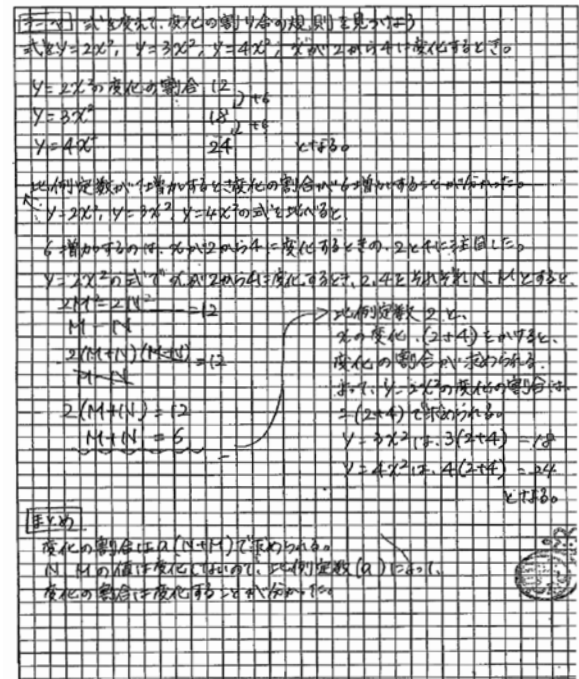 テーマ 式を変えて、変化の割り合の規則を見つけよう
式をy=2x², y=3x², y=4x², xが2から4に変化するとき。
y=2x²の変化の割合 12
+6
y=3x² 18
+6
y=4x² 24 となる。
比例定数が1増加すると変化の割合が6増加することが分かった。
y=2x², y=3x², y=4x²の式を比べると、
6増加するのは、xが2から4に変化するときの、2と4に注目した。
y=2x²の式で xが2から4に変化するとき、2,4をそれぞれN,Mとすると、
2M²-2N²
M-N
=12
2(M+N)(M-N)
M-N
=12
2(M+N)=12
M+N=6
比例定数2と、
xの変化、(2+4)をかけると、
変化の割合が求められる。
よって、y=2x²の変化の割合は、
2(2+4)で求められる。
y=3x²は、3(2+4)=18
y=4x²は、4(2+4)=24
となる。
まとめ
変化の割合はa(N+M)で求められる。
N Mの値は変化してないので、比例定数(a)によって、
変化の割合は変化することが分かった。